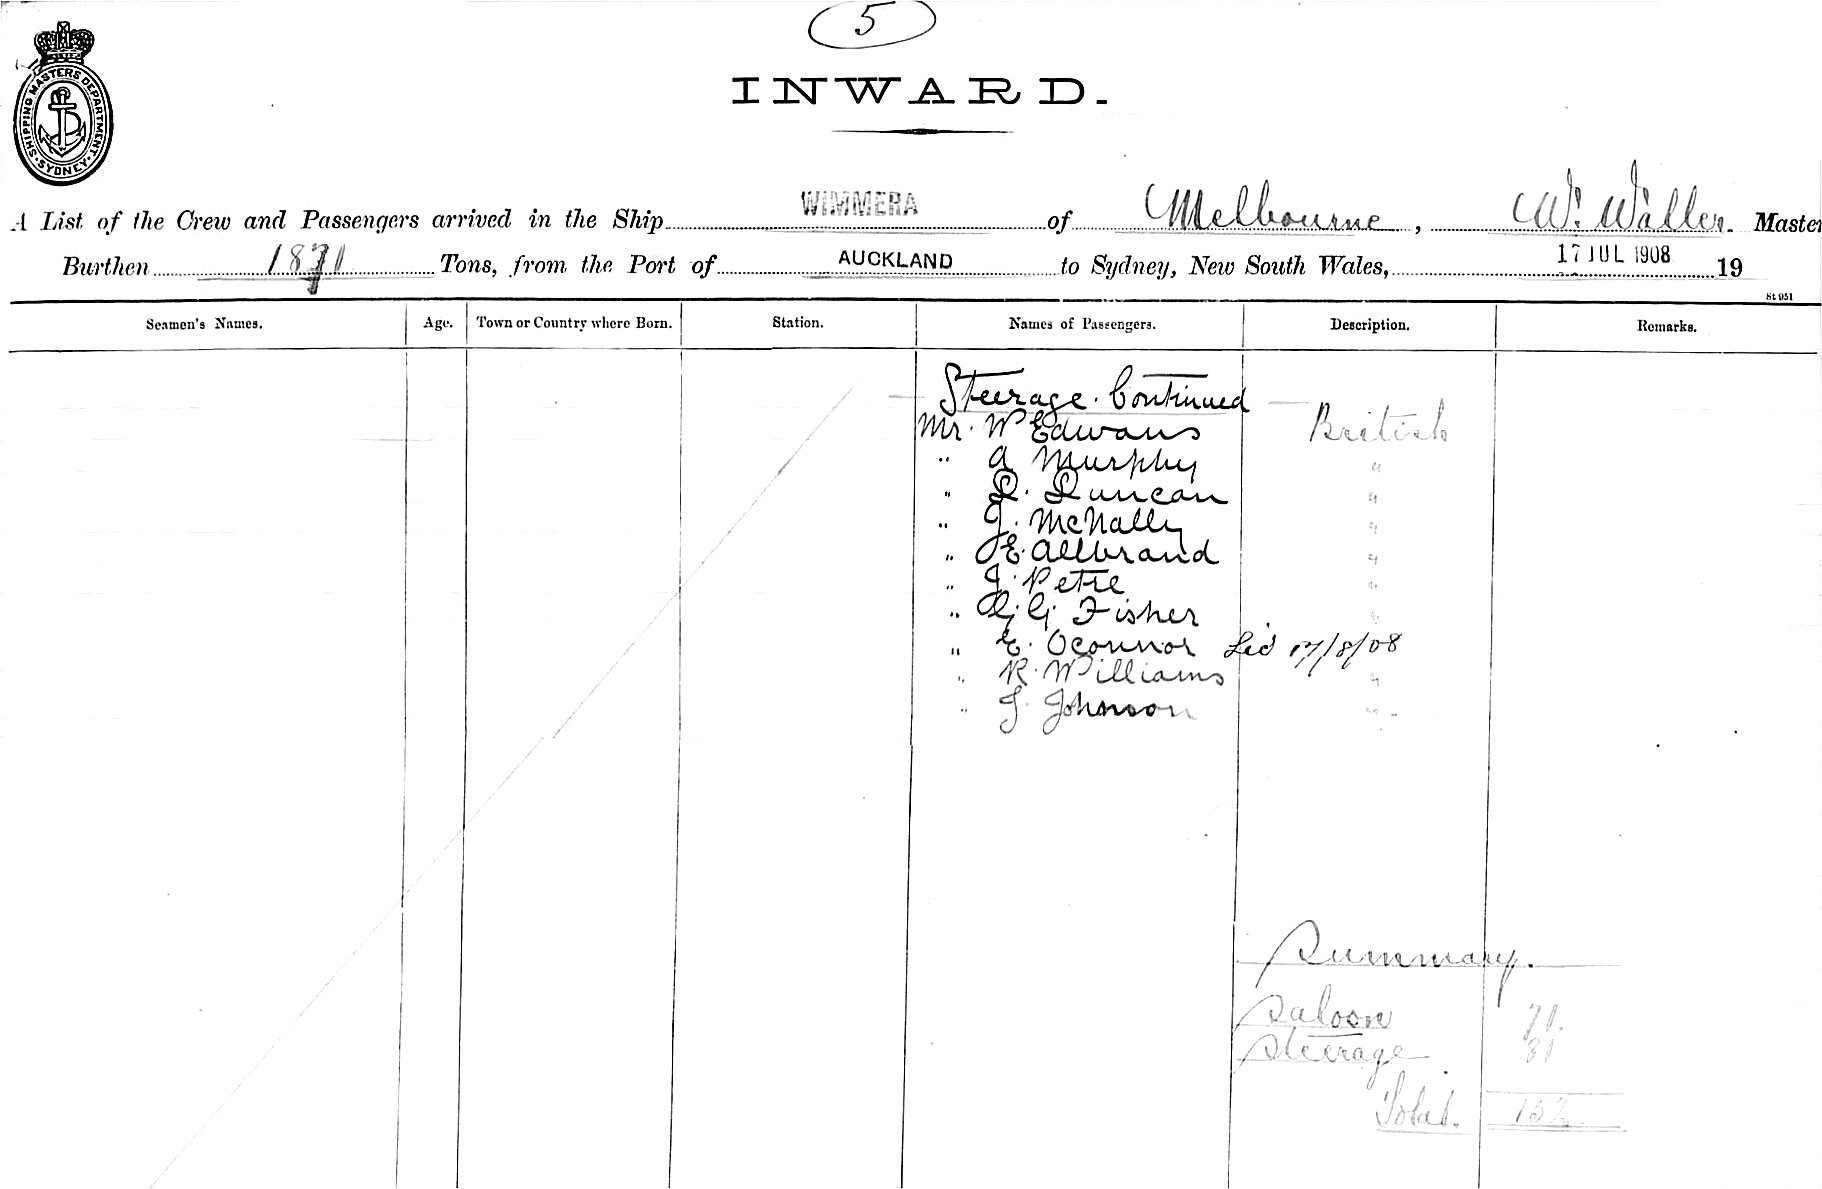 5
INWARD.
SHIPPING MASTERS DEPARTMENT
SYDNEY
A List of the Crew and Passengers arrived in the Ship WIMMERA of Melbourne, W. Waller. Master
Burthen 1871 Tons, from the Port of AUCKLAND to Sydney, New South Wales, 17 JUL 1908 19
St 951
Seamen's Names. Age. Town or Country where Born. Station. Names of Passengers. Description. Remarks.
Steerage. Continued
Mr. W Edwans British
" A Murphy "
" D. Duncan "
" J. McNally "
" E. Allbrand "
" J. Petre "
" G. G. Fisher "
" E. Oconnor 17/8/08
" R. Williams "
" J. Johnson "
Summary.
Saloon 71.
Steerage 81
Total. 152